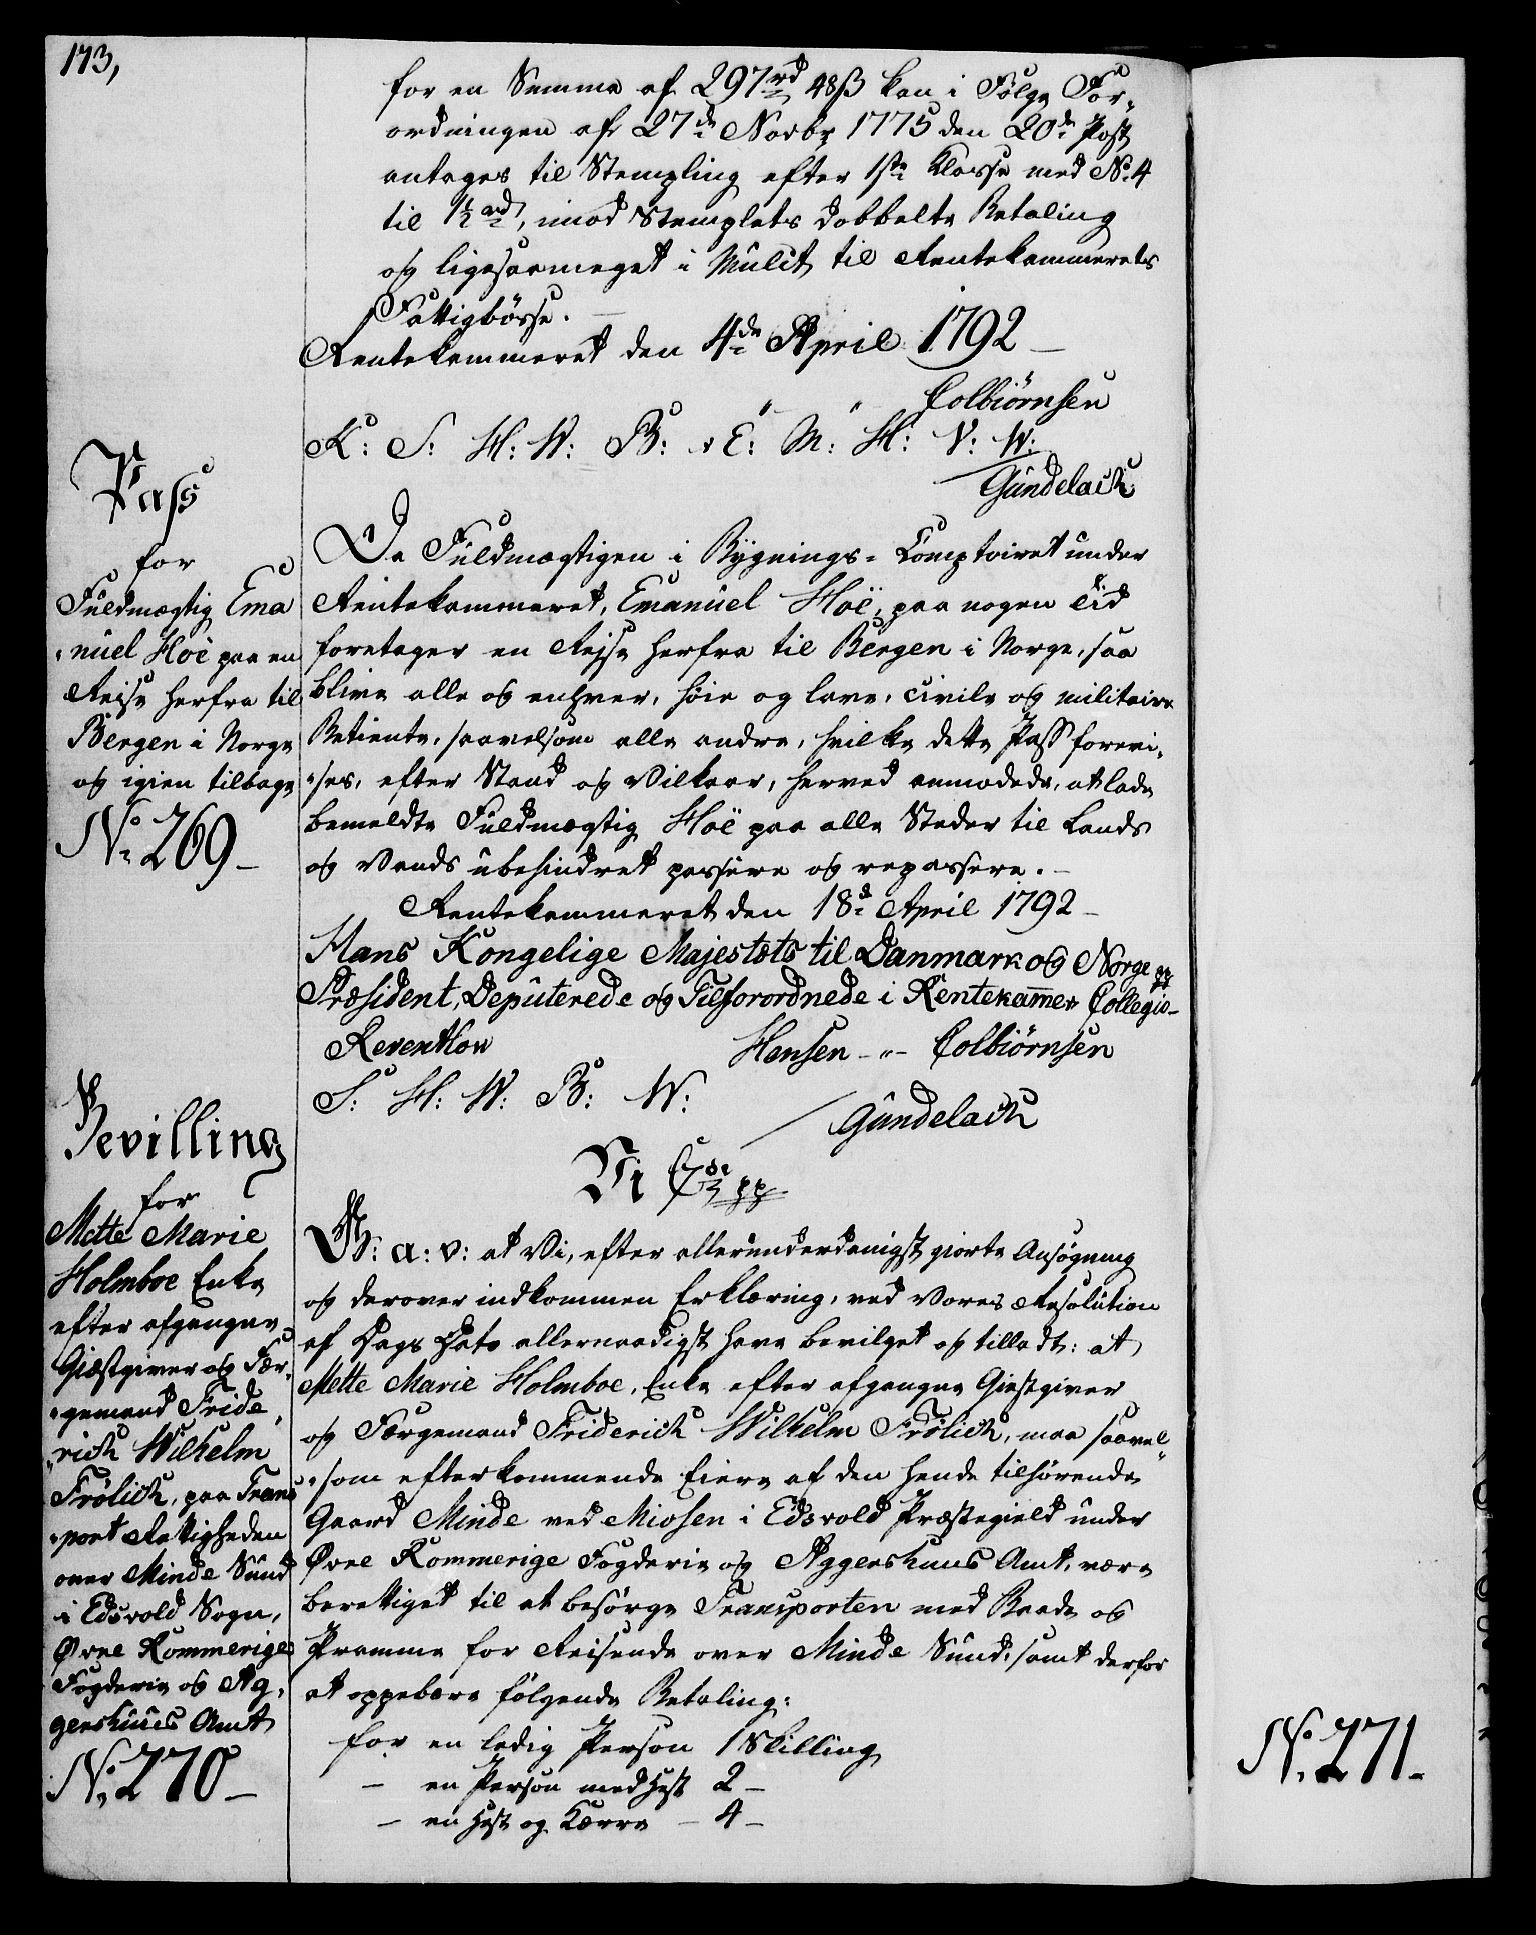 173,
for en Summa af 297rd 48ß kan i Følge For-
ordningen af 27de Novbr 1775 den 20de Post
antages til Stempling efter 1ste Klasse med No 4
til 1½ rd, imod Stemplets dobbelte Betaling
og ligesaameget i Mulct til Rentekammerets
Fattigbøsse.
Rentekammeret den 4de April 1792
Colbiørnsen
K: S: H: W: B: v E: M: H: V: W:
Gündelach
Pass
for
Fuldmægtig Ema
nuel Hoë paa en
Reise herfra til
Bergen i Norge
og igien tilbage
No 269
Da Fuldmægtigen i Bygnings-Comptoiret under
Rentekammeret, Emanuel Hoë, paa nogen Tid
foretager en Rejse herfra til Bergen i Norge, saa
blive alle og enhver, høie og lave, civile og militaire
Betiente, saavelsom alle andre, hvilke dette Pass forevi-
ses, efter Stand og Vilkaar, herved anmodede, at lade
bemeldte Fuldmægtig Hoë paa alle Steder til Lands
og Vands ubehindret passere og repassere.
Rentekammeret den 18de April 1792
Hans Kongelige Majestæts til Danmark og Norge pp
Præsident, Deputerede og Tilforordnede i Rentekammer Collegio
Reventlow Hansen Colbiørnsen
S: H: W: B: W:
Gündelach
Bevilling
for
Mette Marie
Holmboe Enke
efter afgangne
Giæstgiver og Fær-
gemand Fride-
rich Wilhelm
Frölich, paa Trans
port Rettigheden
over Minde Sund
i Edsvold Sogn,
Øvre Rommerige
Fogderie og Ag-
gershuus Amt
No 270
Vi C7de pp
G: a: v: at Vi, efter allerunderdanigst giorte Ansøgning
og derover indkommen Erklæring, ved Vores Resolution
af Dags Dato allernaadigst have bevilget og tilladt: at
Mette Marie Holmboe, Enke efter afgangne Giestgiver
og Færgemand Friderich Wilhelm Frölich, maa saavel
som efterkommende Eiere af den hende tilhørende
Gaard Minde ved Miosen i Edsvold Præstegield under
Øvre Rommerige Fogderie og Aggershuus Amt, være
berettiget til at besørge Transporten med Baade og
Pramme for Reisende over Minde Sund, samt derfor
at oppebære følgende Betaling:
for en ledig Person 1 Skilling
— en Person med Hest 2 —
— en Hest og Kærre — 4 —
No 271